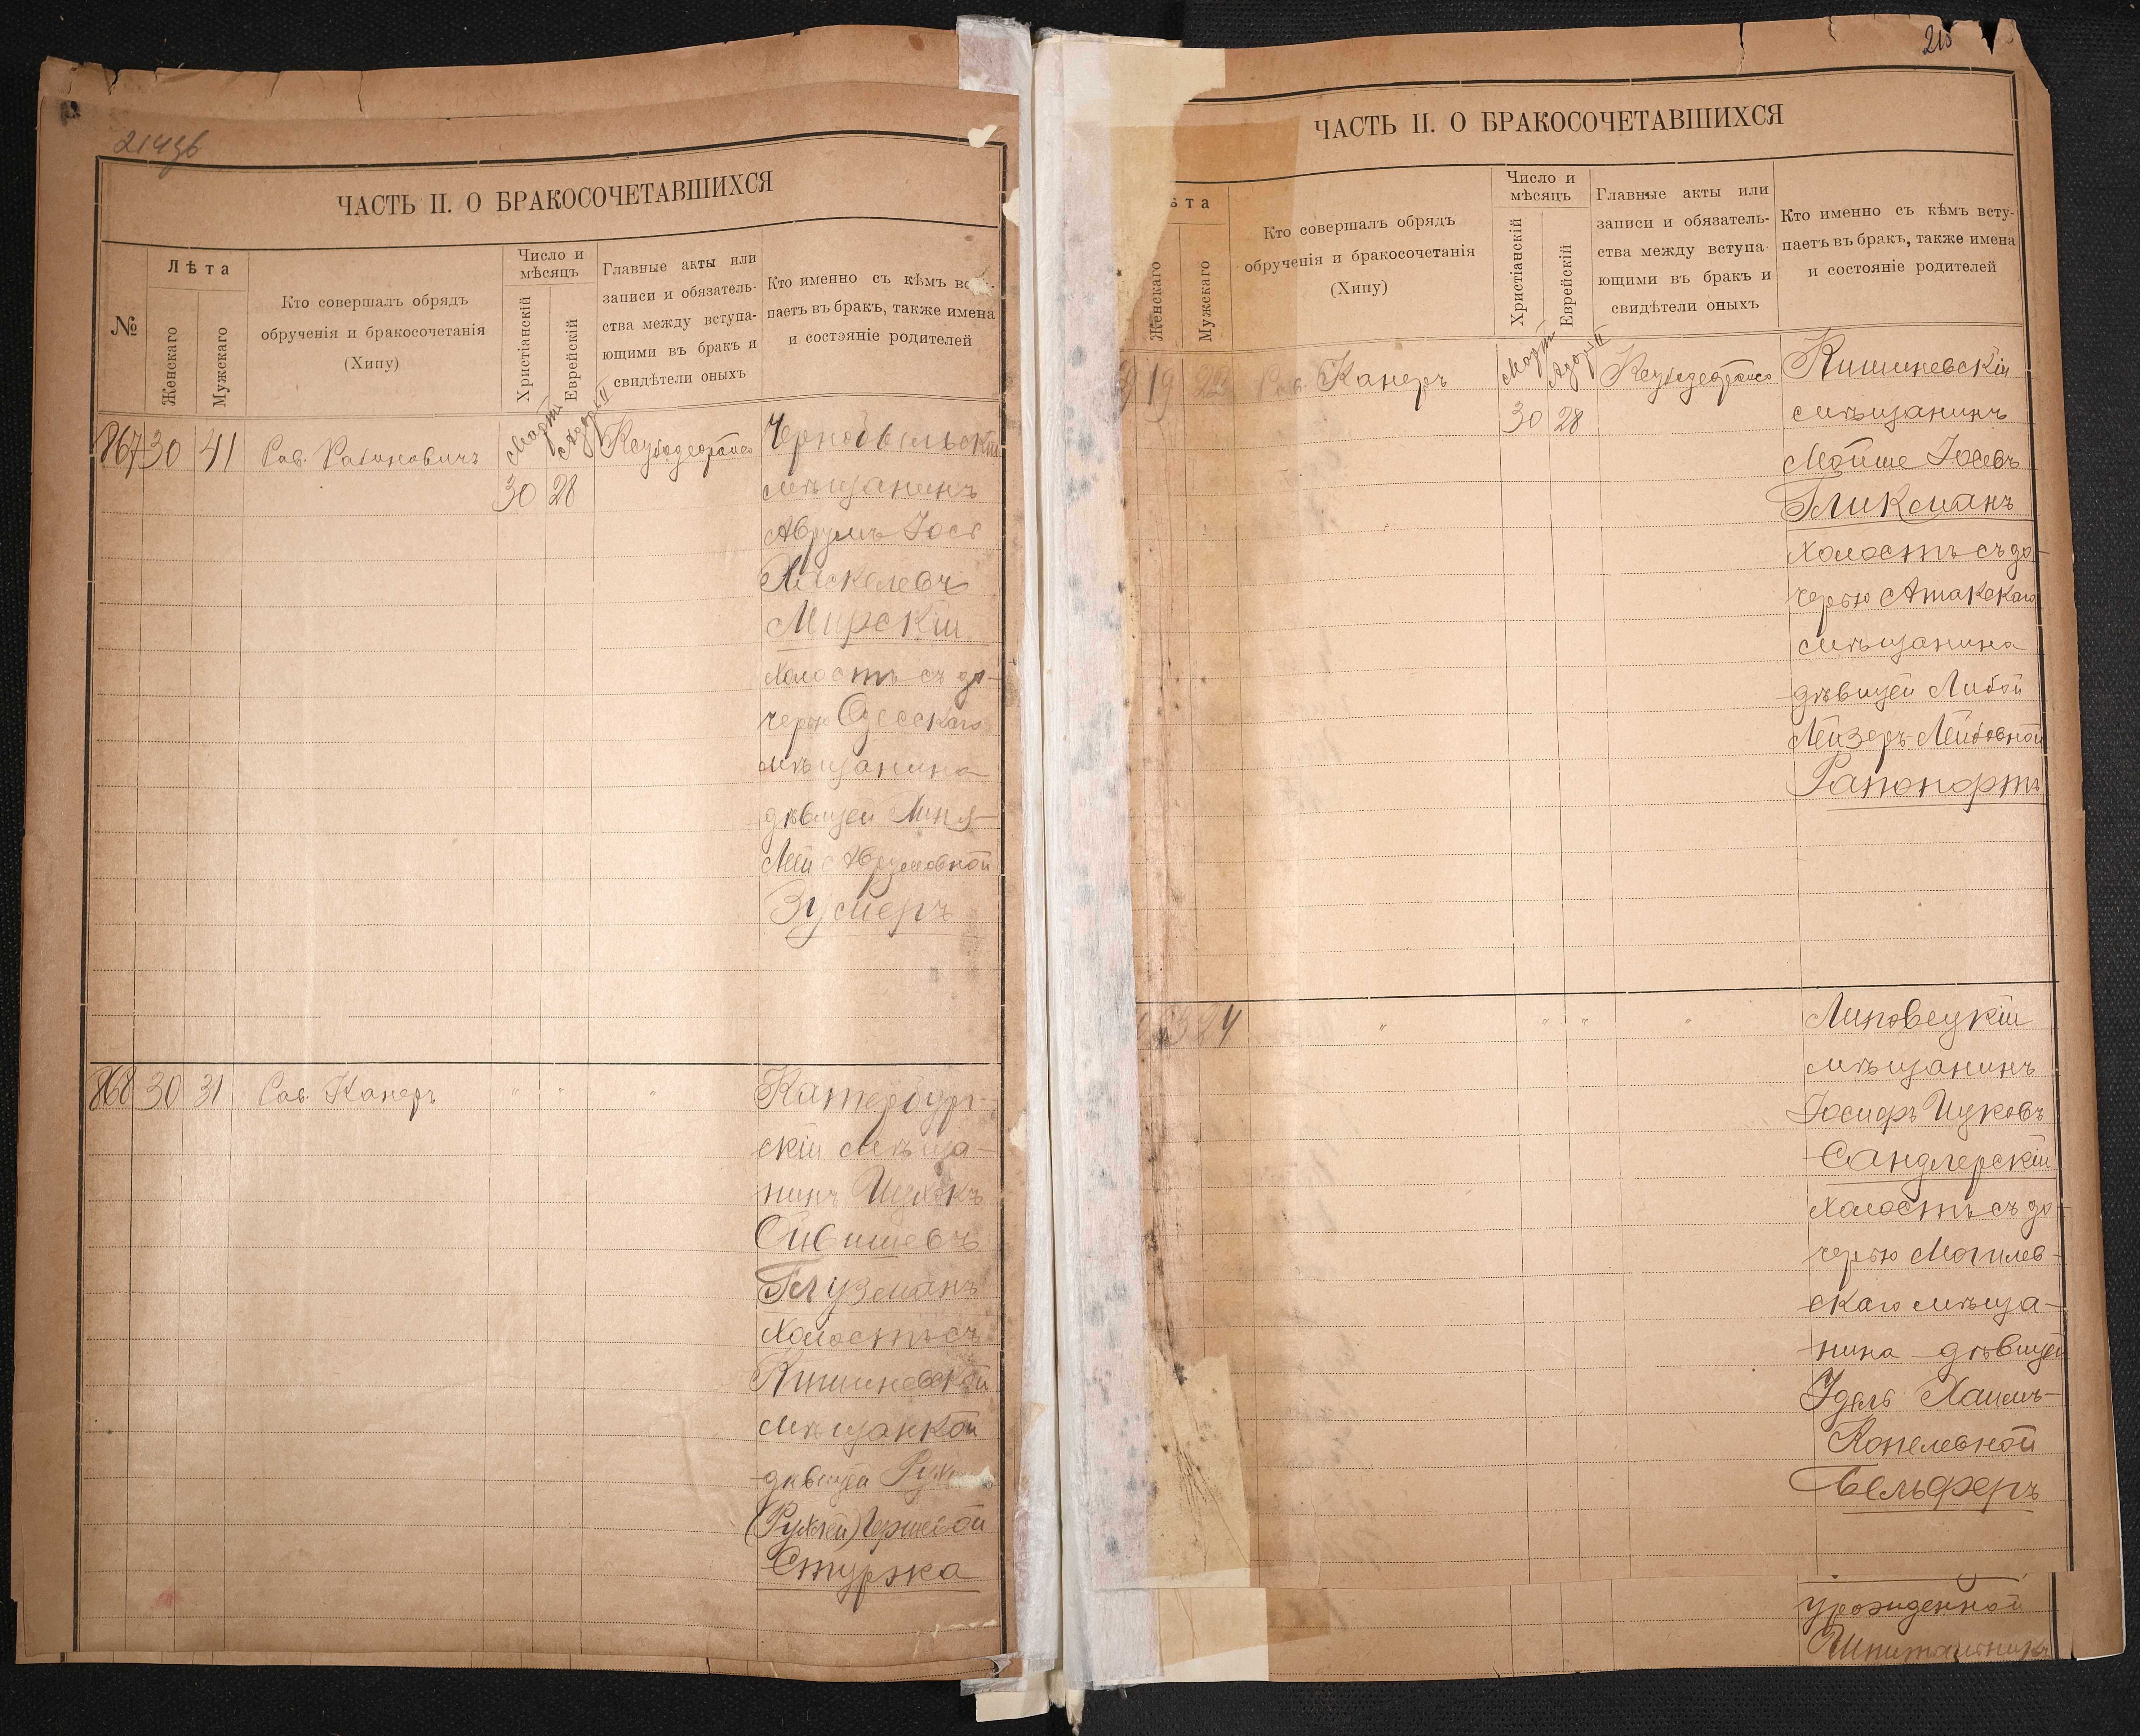 214об
ЧАСТЬ II. О БРАКОСОЧЕТАВШИХСЯ
№
Лѣта
Женскаго
Мужскаго
Кто совершалъ обрядъ
обрученія и бракосочетанія
(Хипу)
Число и
мѣсяцъ
Христіанскій
Еврейскій
Главные акты или
записи и обязатель-
ства между вступа-
ющими въ бракъ и
свидѣтели оныхъ
Кто именно съ кѣмъ всту-
паетъ въ бракъ, также имена
и состояніе родителей
867 30 41 Рав. Рабиновичъ
Мартъ Адоръ II
30 28
Чернобыльскій
мѣщанинъ
Аврумъ Іось
Хаскелевъ
Мирскій
холостъ съ до-
черью Одесскаго
мѣщанина
дѣвицей
Аврумовной
Зусмеръ
868 30 31 Рав. Канеръ " " "
Катербург-
скій мѣща-
нинъ Ицхокъ
Ойвишевъ
Глузманъ
холостъ съ
Кишиневской
мѣщанкой
дѣвицей
Стурза
215
ЧАСТЬ II. О БРАКОСОЧЕТАВШИХСЯ
ѣта
Женскаго
Мужскаго
Кто совершалъ обрядъ
обрученія и бракосочетанія
(Хипу)
Число и
мѣсяцъ
Христіанскій
Еврейскій
Главные акты или
записи и обязатель-
ства между вступа-
ющими въ бракъ и
свидѣтели оныхъ
Кто именно съ кѣмъ всту-
паетъ въ бракъ, также имена
и состояніе родителей
9 19 22 Рав. Канеръ
Мартъ Адоръ II
30 28
Кишиневскій
мѣщанинъ
Мойше Іосевъ
Гликманъ
холостъ съ до-
черью Атакскаго
мѣщанина
дѣвицей Либой
Лейзеръ-Лейбовной
Рапопортъ
24 " " " "
Липовецкій
мѣщанинъ
Іосифъ Ицковъ
Сандлерскій
холостъ съ до-
черью Могилев-
скаго мѣща-
нина дѣвицей
Идель Хаимъ-
Копелевной
Бельферъ
урожденной